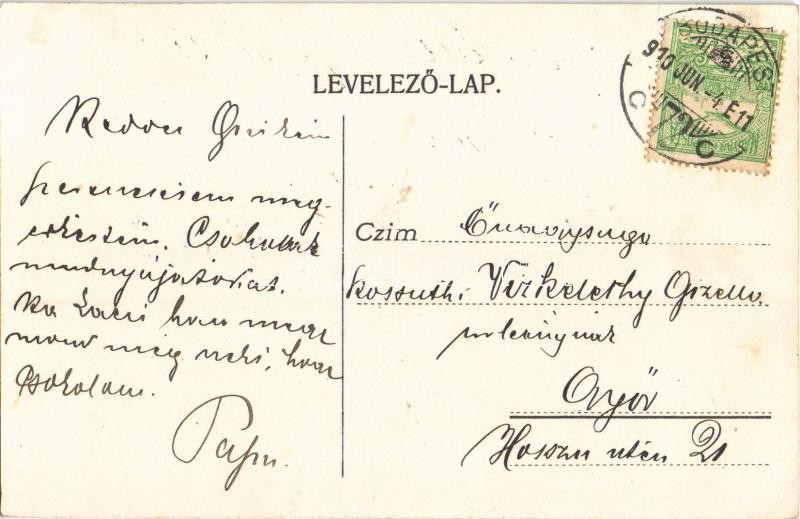 LEVELEZŐ-LAP.
BUDAPEST
910 JUN.-4.E11
Kedves
szerencsésen meg-
érkeztem. Csókolak
mindnyájatokat.
Ha Laci haza megy
mond meg neki, hogy
csokolom.
Papa.
Czim Őnagysága
Kossuthi Vizkelethy Gizella
urleánynak
Győr
Hosszu utca 21